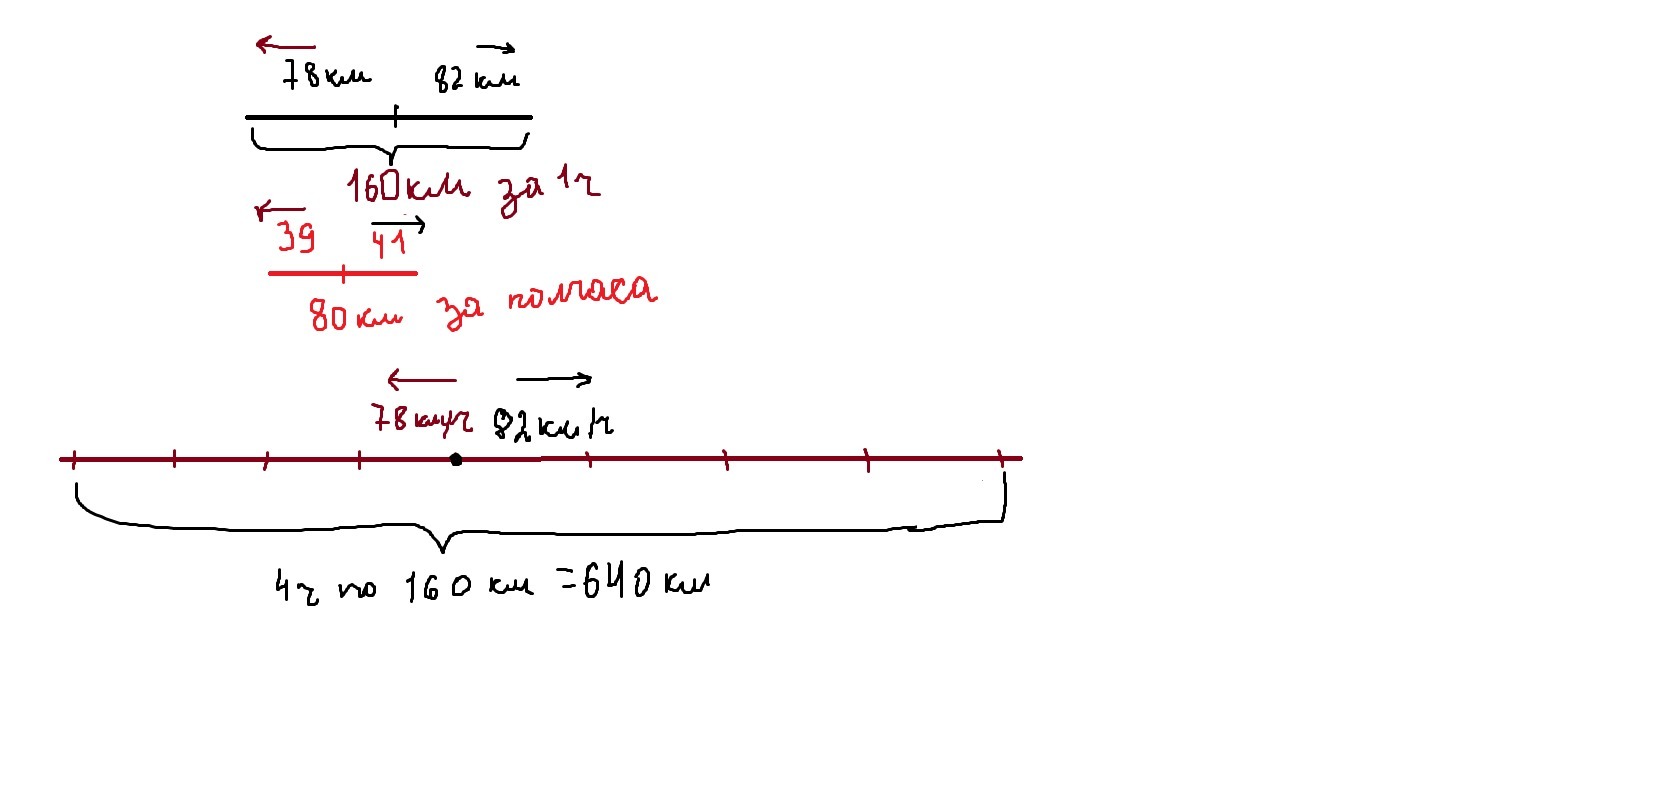 78 км 82 км
160 км за 1ч
39 41
80 км за полчаса
78 км/ч 82 км/ч
4ч по 160 км =640 км